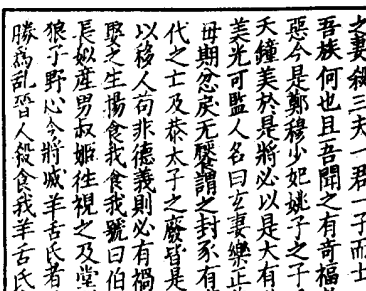 之妻殺三夫一君一子而亡
吾族何也且吾聞之有奇福
惡今是鄭穆少妃姚子之子
天鐘美於是將必以是大有
美光可監人名曰玄妻樂正
毋期忿戾无饜謂之封豕有
代之士及恭太子之廢皆是
以移人苟非德義則必有禍
娶之生揚食我食我號曰伯
長姒產男叔姬往視之及堂
狼子野心今將滅羊舌氏者
勝為乱晉人殺食我羊舌氏